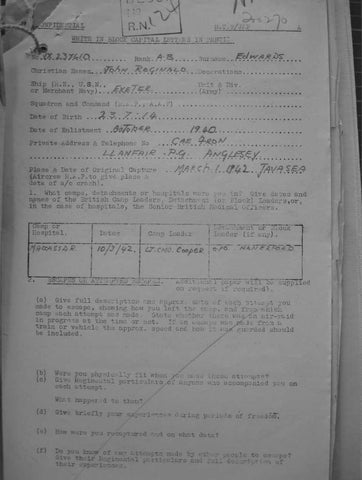 CONFIDENTIAL
R.N.
WRITE IN BLOCK CAPITAL LETTERS IN PENCIL
No. Rank. A.B. Surname. EDWARDS
Christian Names. JOHN REGINALD Decorations.
Ship (R.N., U.S.N. or Merchant Navy) EXETER Unit & Div. (Army)
Squadron and Command (R.A.F., A.A.F)
Date of Birth 23.7.14
Date of Enlistment OCTOBER 1940
Private Address & Telephone No CAE
LLANFAIR P.G. ANGLESEY
Place & Date of Original Capture MARCH 1. 1942.
(Aircrew R.A.F. to give place &
date of a/c crash).
1. What camps, detachments or hospitals were you in? Give dates and
names of the British Camp Leaders, Detachment (or Block) Leaders, or,
in the case of hospitals, the Senior British Medical Officers.
Camp or Hospital. Dates Camp Leader Detachment or Block Leader (if any).
MACASSAR 10/3/42. LT. CMD. COOPER
2. Additional paper will be supplied
on request if required).
(a) Give full description and approx. date of each attempt you
made to escape, showing how you left the camp, and from which
camp each attempt was made. State whether there was an air-raid
in progress at the time or not. If an escape was made from a
train or vehicle the approx. speed and how it was guarded should
be included.
(b) Were you physically fit when you made these attempts?
(c) Give Regimental particulars of anyone who accompanied you on
each attempt.
What happened to them?
(d) Give briefly your experiences during periods of freedom.
(e) How were you recaptured and on what date?
(f) Do you know of any attempts made by other people to escape?
Give their Regimental particulars and full description of
their experiences.